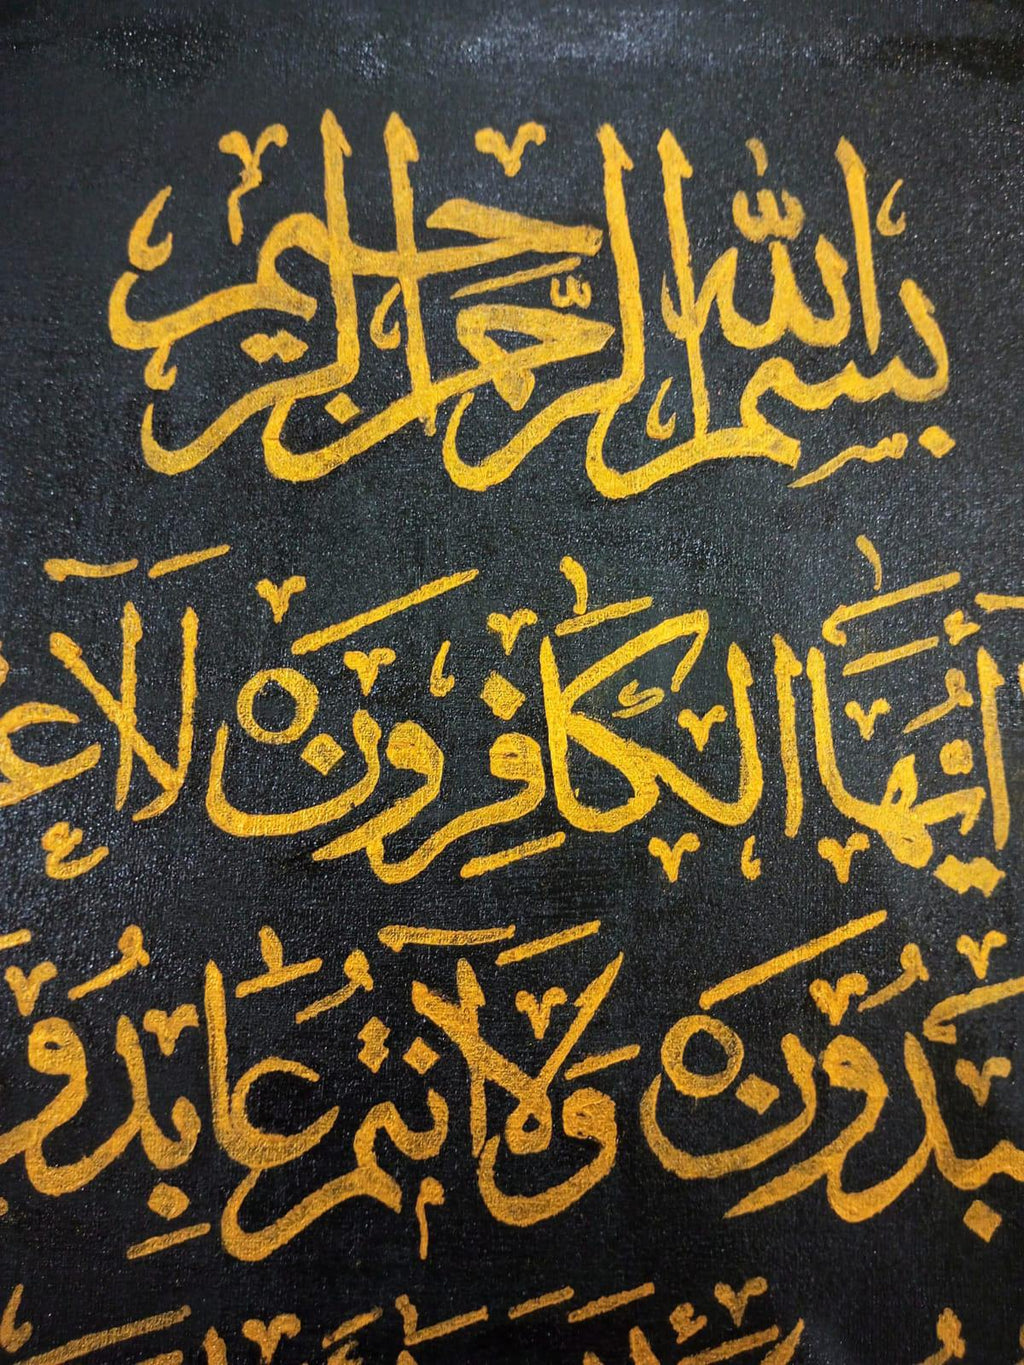 بِسْمِ اللهِ الرَّحْمٰنِ الرَّحِيمِ
أَيُّهَا الْكَافِرُونَ لَآ
بُدُونَ وَلَآ أَنْتُمْ عَابِدُو